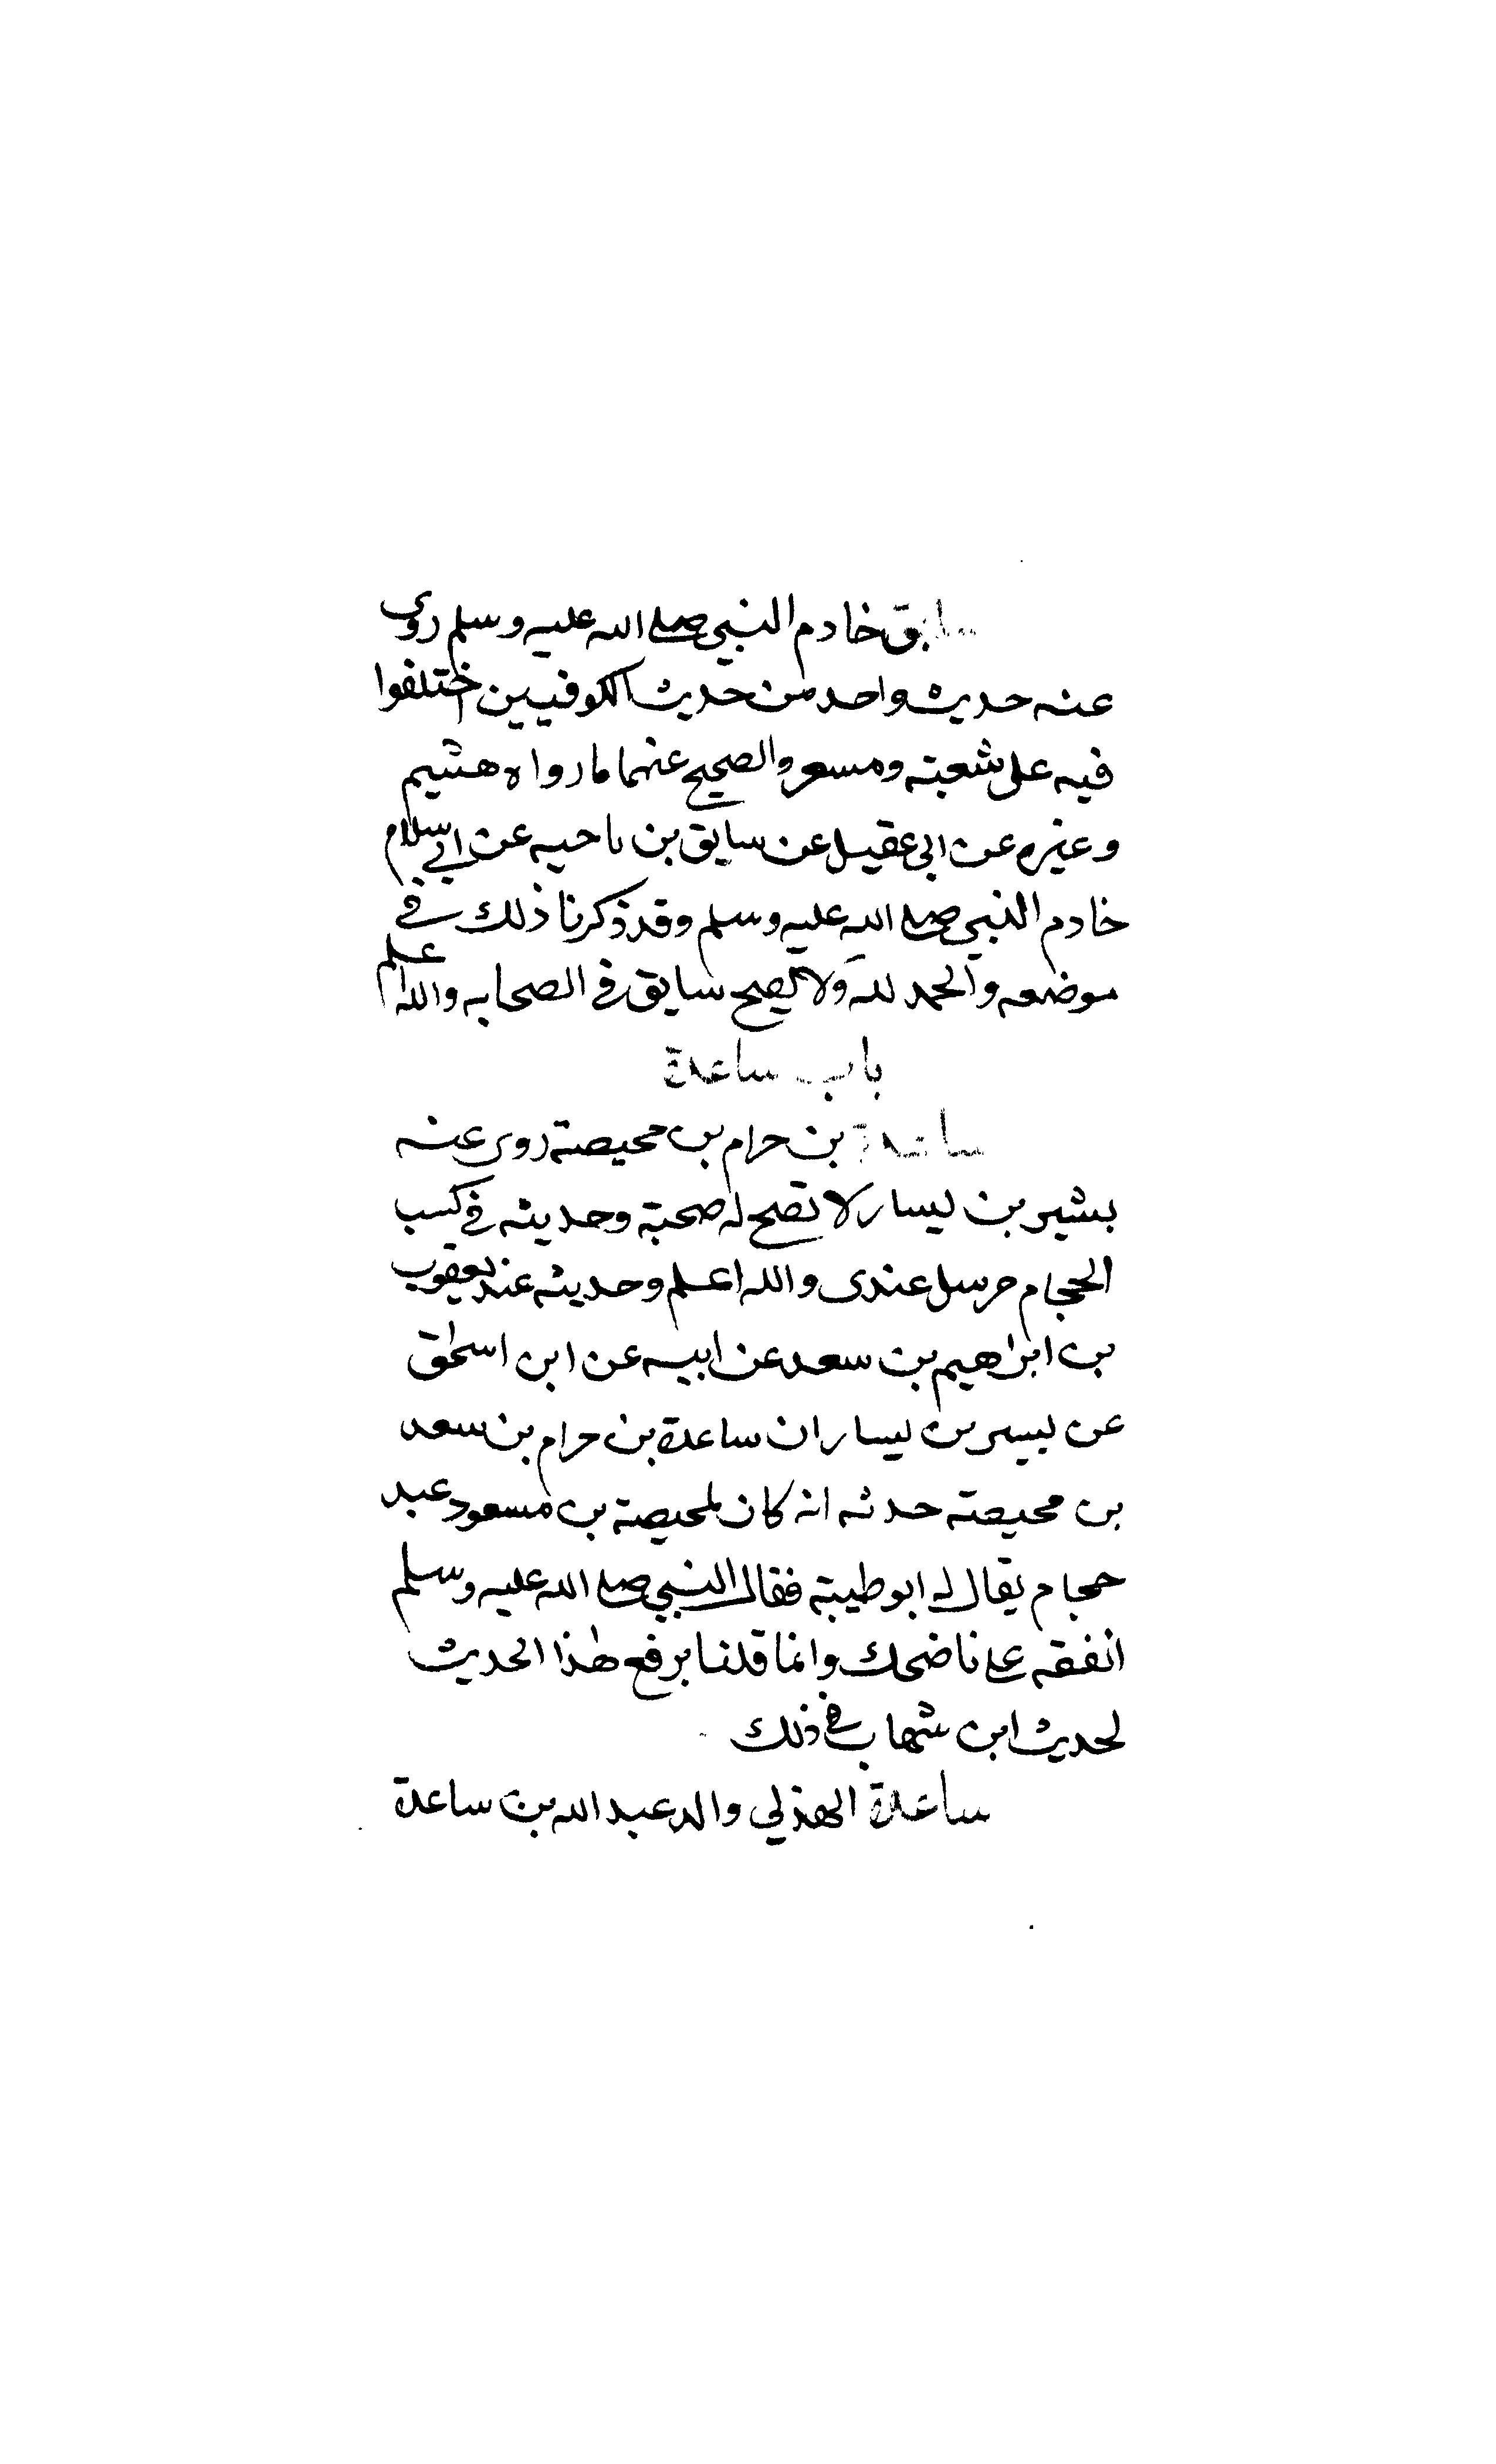 سابق خادم النبي صلى الله عليه وسلم روى
عنه حديث واحد من حديث الكوفيين اختلفوا
فيه على شعبته ومسعر والصحيح عنهما ما رواه هشيم
وغيره عن ابى عقيل عن سابق بن ناحيه عن ابي سلام
خادم النبي صلى الله عليه وسلم وقد ذكرنا ذلك في
موضعه والحمد لله ولا يصح سابق في الصحابه والله اعلم
باب ساعدة
ساعدة بن حرام بن محيصة روى عنه
بشير بن يسار لا تصح له صحبة وحديثه في كسب
الحجام مرسل عندى والله اعلم وحديثه عند يعقوب
بن ابراهيم بن سعد عن ابيه عن ابن اسحق
عن بسير بن يسار ان ساعدة بن حرام بن سعد
بن محيصته حدثه انه كان لمحيصة بن مسعود عبد
حجام يقال له ابو طيبته فقال النبي صلى الله عليه وسلم
انفقه على ناضحك وانما قلنا برفع هذا الحديث
لحديث ابن شهاب في ذلك
ساعدة الهذلي والد عبد الله بن ساعدة